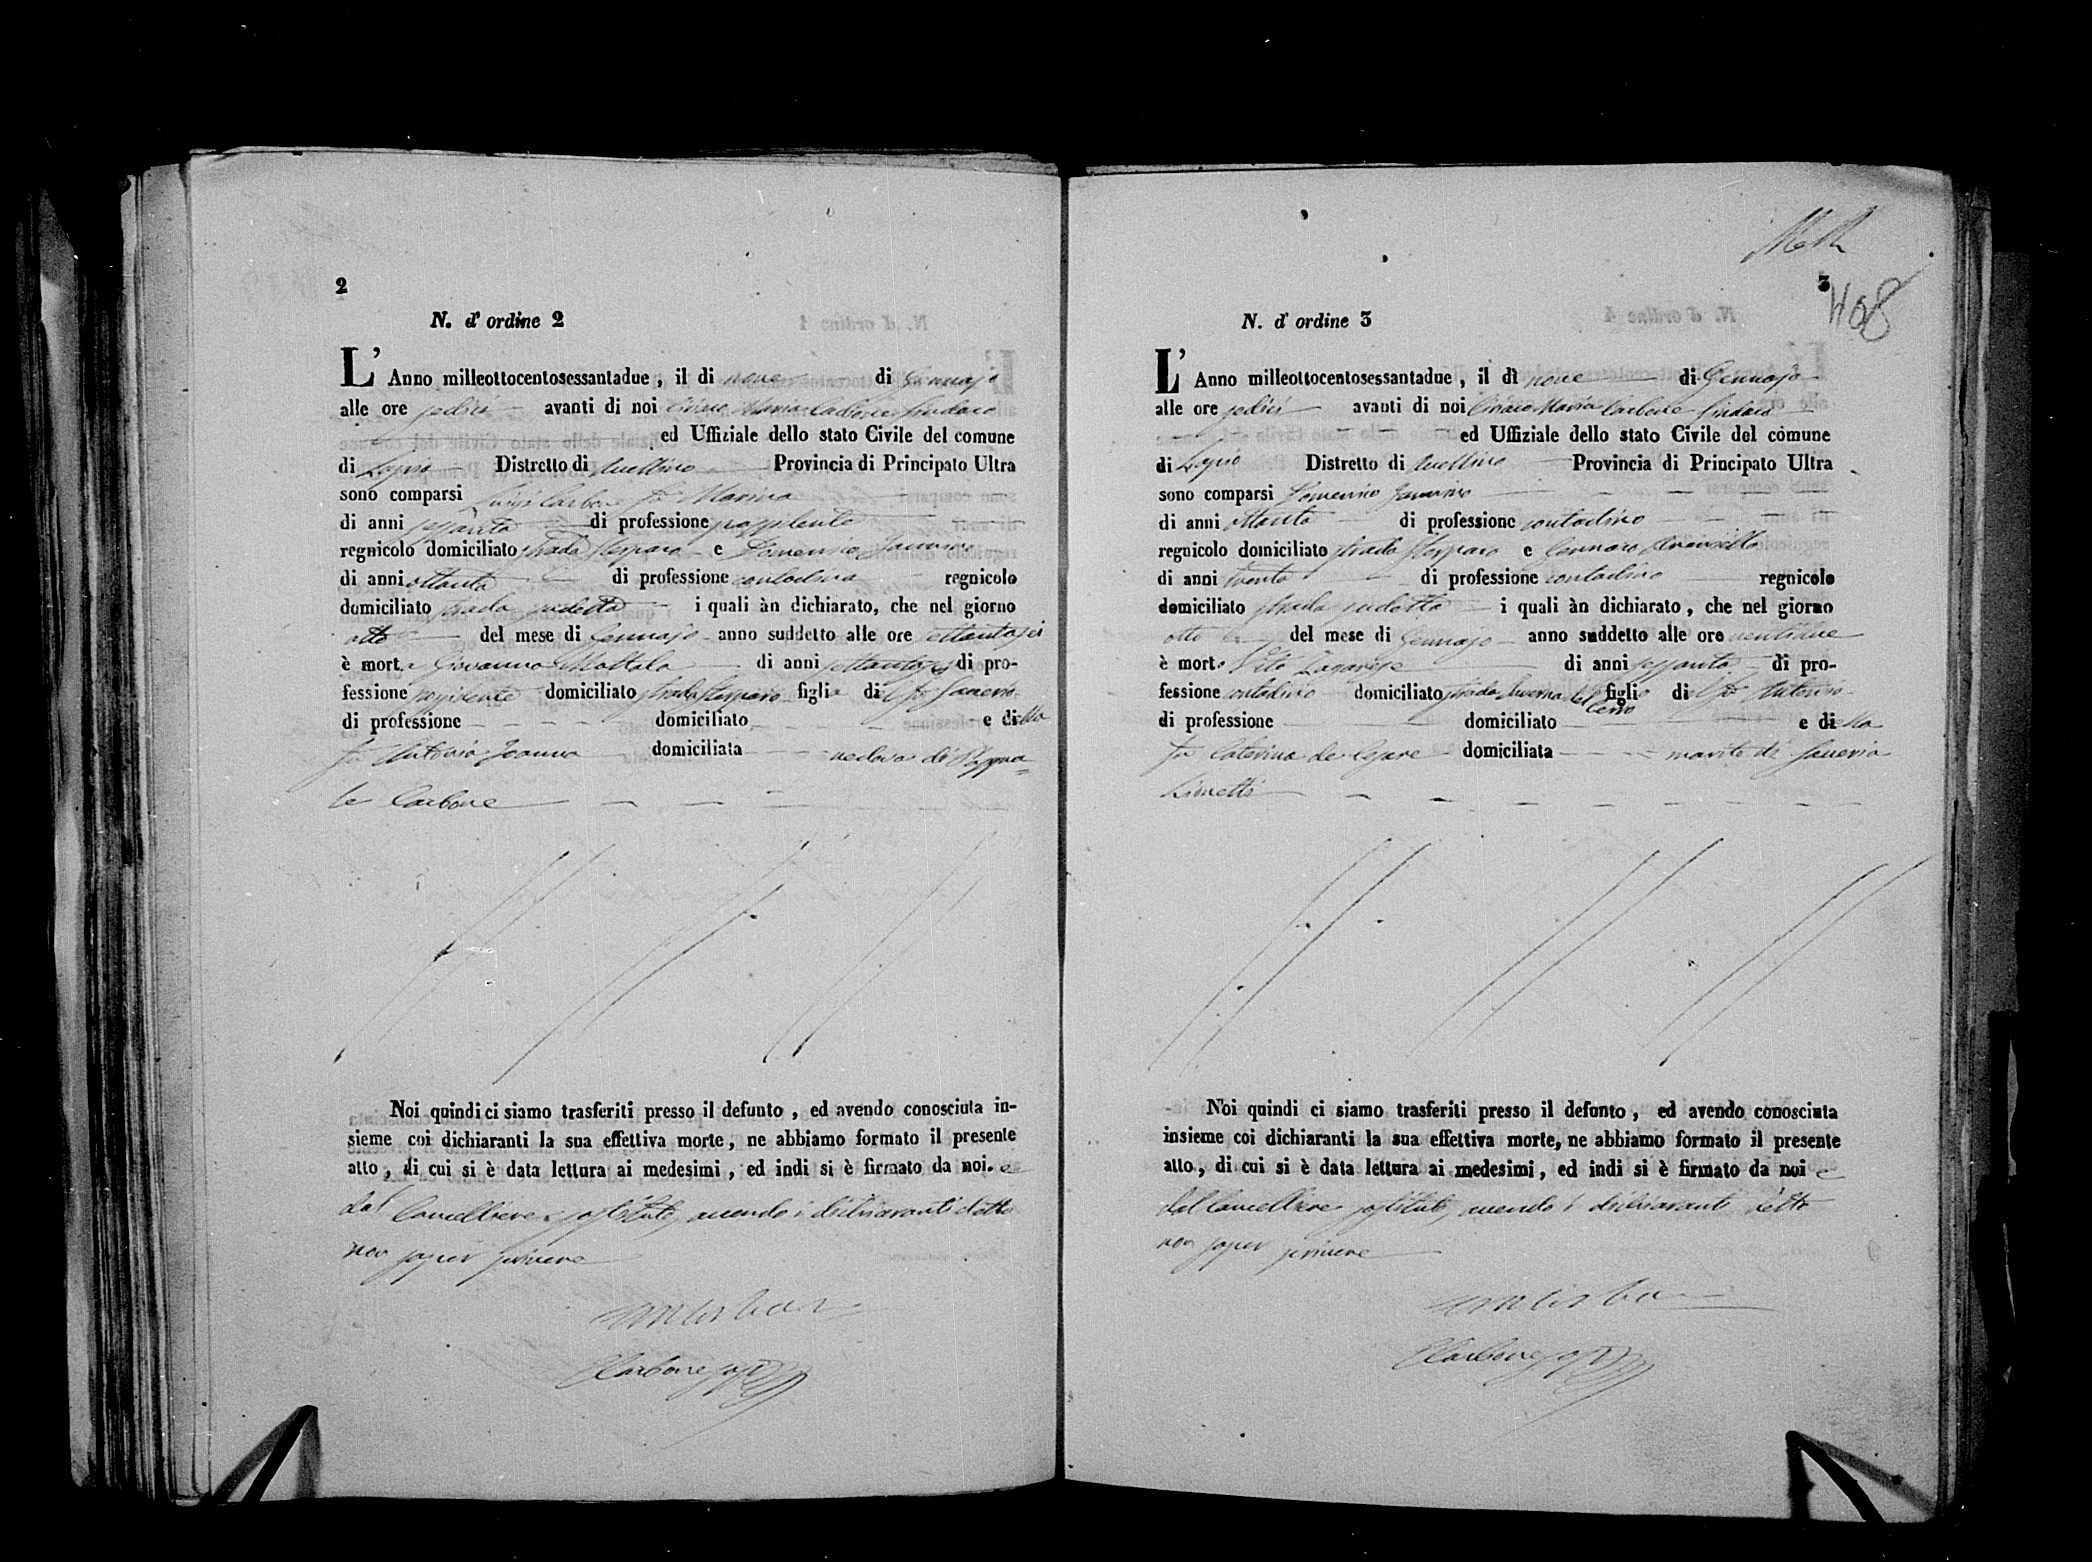 2
N. d' ordine 2
L' Anno milleottocentosessantadue, il di nove di Gennajo
alle ore sedici avanti di noi Ciriaco Maria Carbone Sindaco
ed Uffiziale dello stato Civile del comune
di Lapio Distretto di Avellino Provincia di Principato Ultra
sono comparsi Luigi Carbone fu Marino
di anni sessanta di professione
regnicolo domiciliato strada e Domenico
di anni ottanta di professione contadino regnicolo
domiciliato strada sudetta i quali àn dichiarato, che nel giorno
otto del mese di Gennajo anno suddetto alle ore
è morta Giovanna di anni di pro-
fessione domiciliato strada figlia del fu Saverio
di professione domiciliato e della
fu Antonia Joanna domiciliata vedova di Pasqua-
le Carbone
Noi quindi ci siamo trasferiti presso il defunto, ed avendo conosciuta in-
sieme coi dichiaranti la sua effettiva morte, ne abbiamo formato il presente
atto, di cui si è data lettura ai medesimi, ed indi si è firmato da noi. e
dal Cancelliere sostituto, avendo i dichiaranti detto
non saper scrivere
Carbone sost
3
408
N. d' ordine 3
L' Anno milleottocentosessantadue, il dì nove di Gennajo
alle ore sedici avanti di noi Ciriaco Maria Carbone Sindaco
ed Uffiziale dello stato Civile del comune
di Lapio Distretto di Avellino Provincia di Principato Ultra
sono comparsi Domenico
di anni ottanta di professione contadino
regnicolo domiciliato strada e Gennaro
di anni trenta di professione contadino regnicolo
domiciliato strada sudetta i quali àn dichiarato, che nel giorno
otto del mese di Gennajo anno suddetto alle ore ventidue
è morto Vito di anni sessanta di pro-
fessione contadino domiciliato strada Taverna del Cerro figlio del fu Antonio
di professione domiciliato e della
fu Caterina de Cesare domiciliata marito di Saveria
Lionetti
Noi quindi ci siamo trasferiti presso il defunto, ed avendo conosciuta
insieme coi dichiaranti la sua effettiva morte, ne abbiamo formato il presente
atto, di cui si è data lettura ai medesimi, ed indi si è firmato da noi e
dal Cancelliere sostituto, avendo i dichiaranti detto
non saper scrivere
Carbone sost